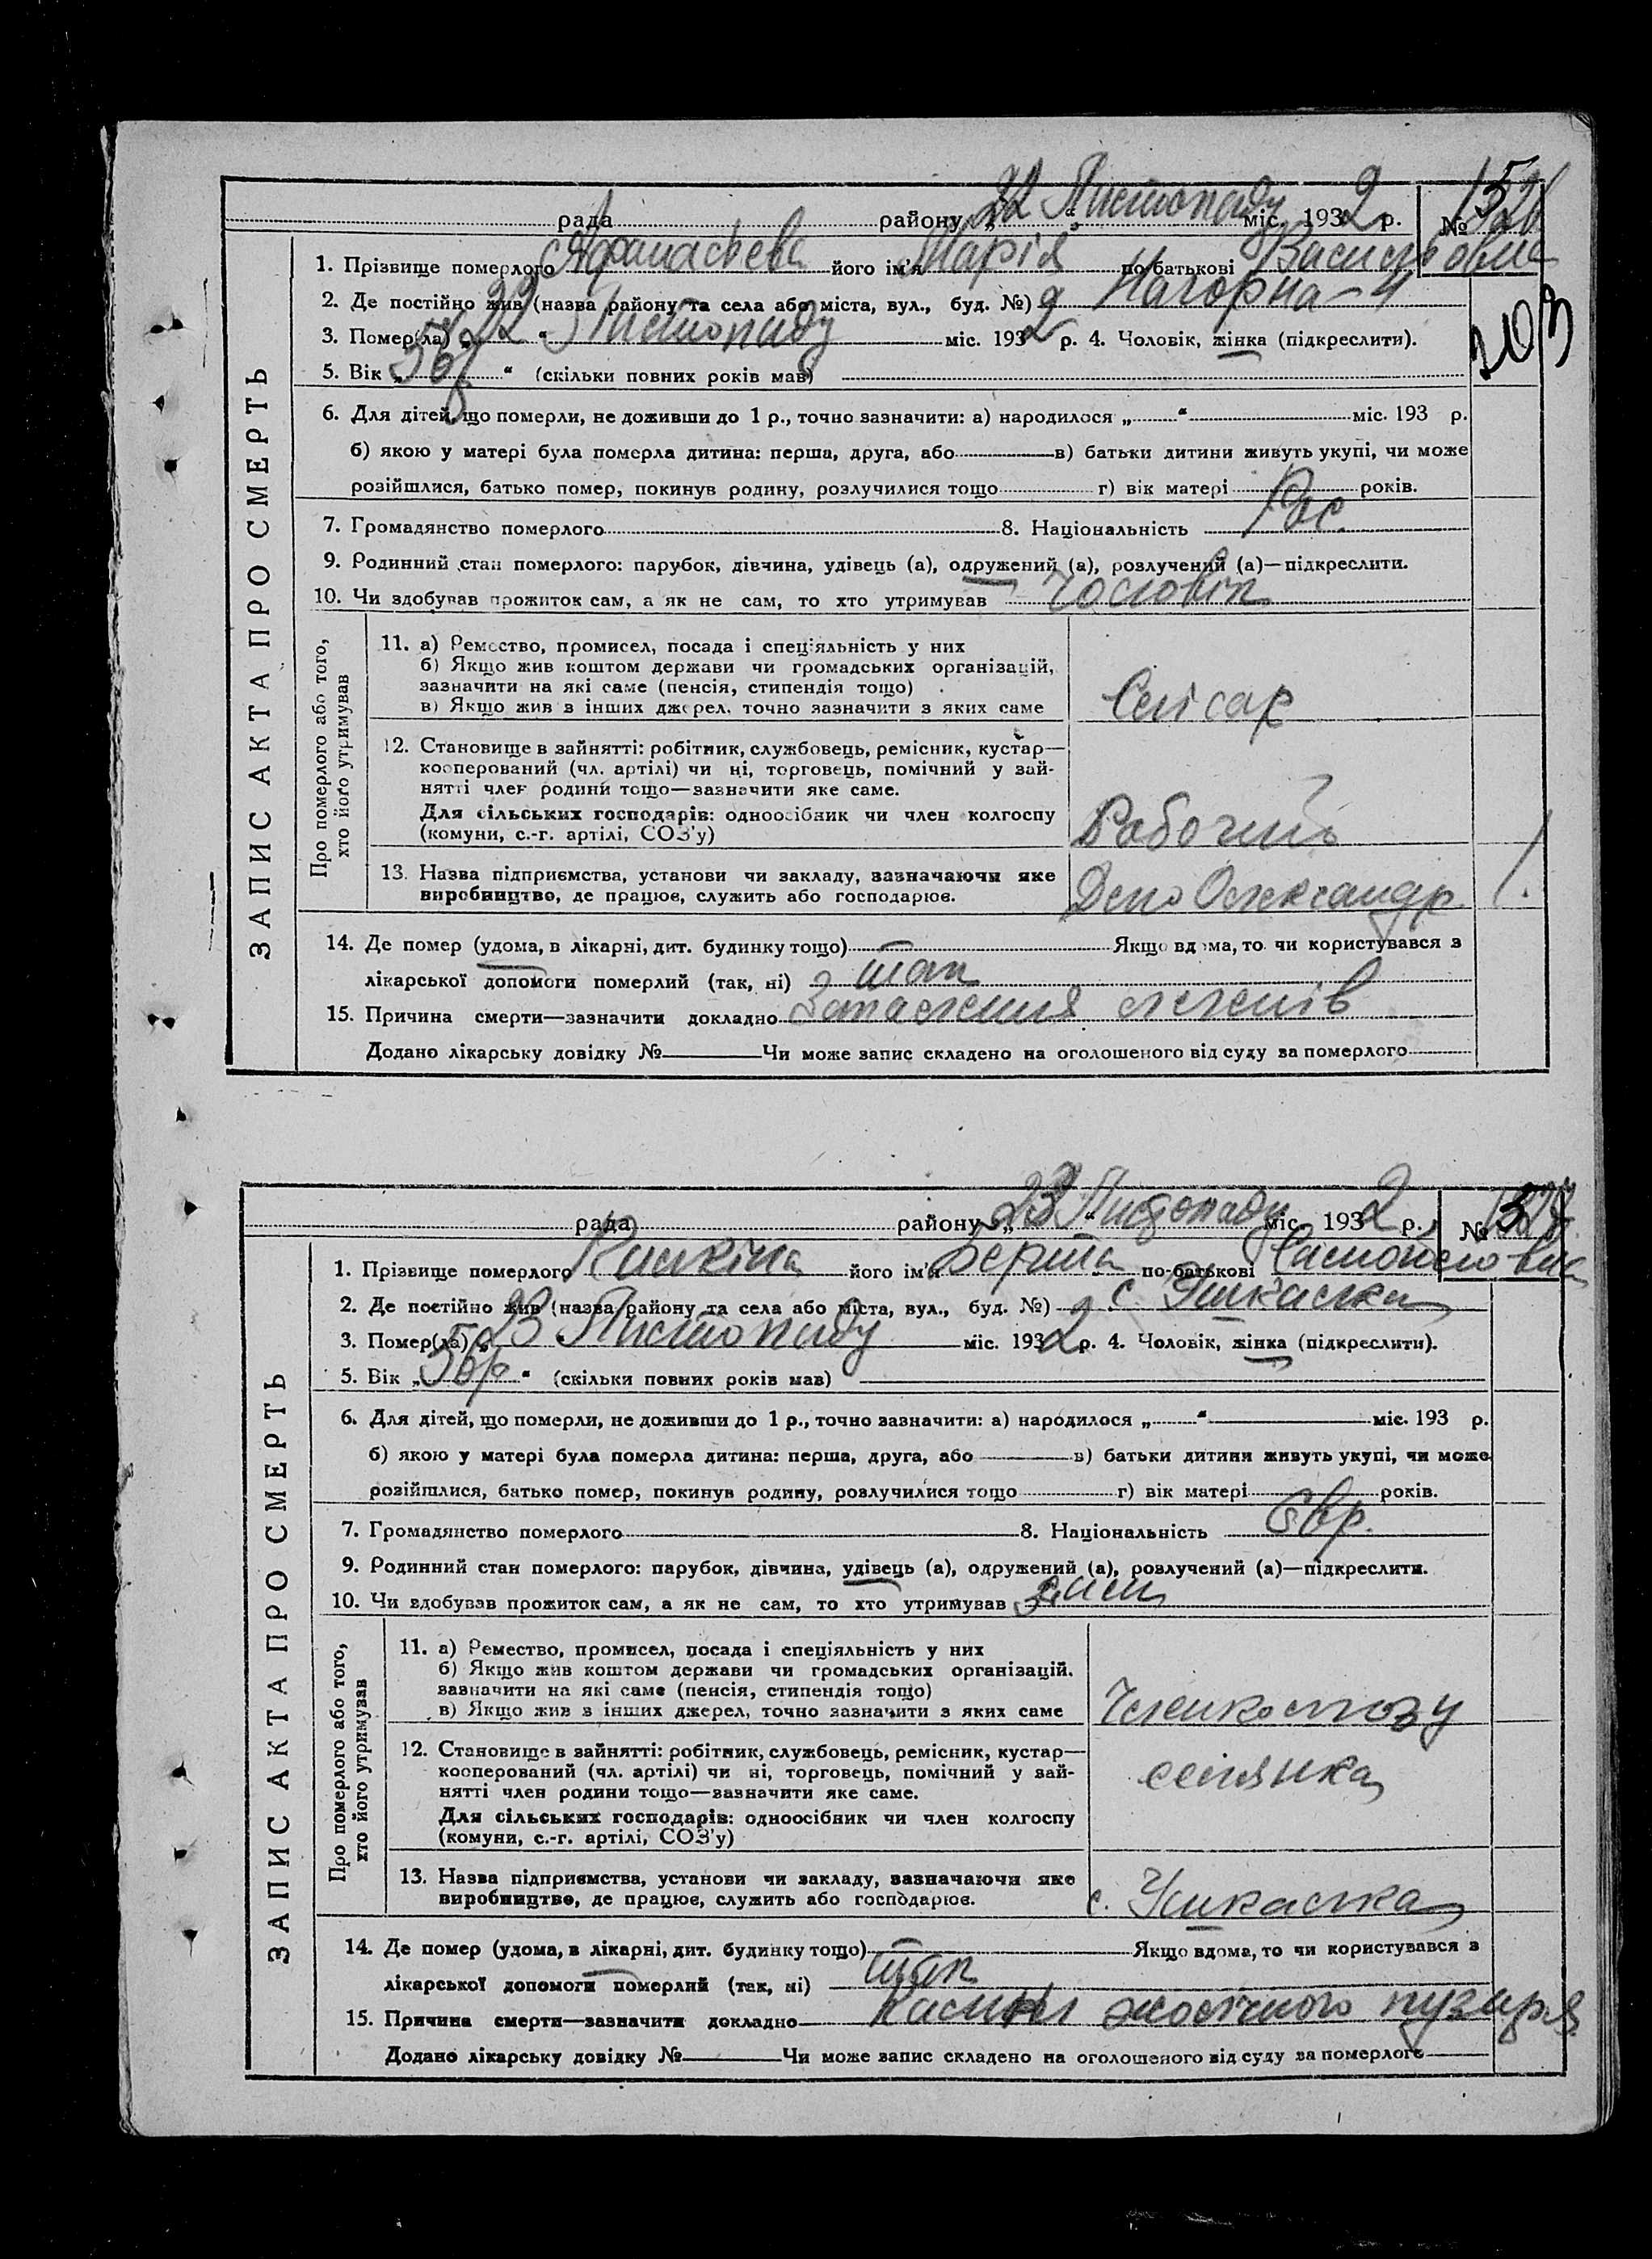 рада району „22“ Листопаду міс. 1932 р. №
1. Прізвище померлого Афанасьева його ім'я Марія по-батькові Васильовна
2. Де постійно жив (назва району та села або міста, вул., буд. №) Нагорна-4
3. Помер(ла) „22“ Листопаду міс. 1932 р. 4. Чоловік, жінка (підкреслити).
5. Вік „56р“ (скільки повних років мав)
6. Для дітей, що померли, не доживши до 1 р., точно зазначити: а) народилося „ “ міс. 193 р.
б) якою у матері була померла дитина: перша, друга, або в) батьки дитини живуть укупі, чи може
розійшлися, батько помер, покинув родину, розлучилися тощо г) вік матері років.
7. Громадянство померлого 8. Національність Рос.
9. Родинний стан померлого: парубок, дівчина, удівець (а), одружений (а), розлучений (а)—підкреслити.
10. Чи здобував прожиток сам, а як не сам, то хто утримував Чоловік
ЗАПИС АКТА ПРО СМЕРТЬ
Про померлого або того,
хто його утримував
11. а) Ремество, промисел, посада і спеціяльність у них
б) Якщо жив коштом держави чи громадських організацій,
зазначити на які саме (пенсія, стипендія тощо)
в) Якщо жив з інших джерел, точно зазначити з яких саме
Слісар
12. Становище в зайнятті: робітник, службовець, ремісник, кустар—
кооперований (чл. артілі) чи ні, торговець, помічний у зай-
нятті член родини тощо—зазначити яке саме.
Для сільських господарів: одноосібник чи член колгоспу
(комуни, с.-г. артілі, СОЗ'у)
Рабочий
13. Назва підприємства, установи чи закладу, зазначаючи яке
виробництво, де працює, служить або господарює.
Депо Олександр.
14. Де помер (удома, в лікарні, дит. будинку тощо) Якщо вдома, то чи користувався з
лікарської допомоги померлий (так, ні) так
15. Причина смерти—зазначити докладно Запаления легенів
Додано лікарську довідку № Чи може запис складено на оголошеного від суду за померлого
рада району „23“ Листопаду міс. 1932 р. №
1. Прізвище померлого його ім'я Берта по-батькові
2. Де постійно жив (назва району та села або міста, вул., буд. №) с.
3. Помер(ла) „23 Листопаду міс. 1932 р. 4. Чоловік, жінка (підкреслити).
5. Вік „56р“ (скільки повних років мав)
6. Для дітей, що померли, не доживши до 1 р., точно зазначити: а) народилося „ “ міс. 193 р.
б) якою у матері була померла дитина: перша, друга, або в) батьки дитини живуть укупі, чи може
розійшлися, батько помер, покинув родину, розлучилися тощо г) вік матері років.
7. Громадянство померлого 8. Національність Євр.
9. Родинний стан померлого: парубок, дівчина, удівець (а), одружений (а), розлучений (а)—підкреслити.
10. Чи здобував прожиток сам, а як не сам, то хто утримував
ЗАПИС АКТА ПРО СМЕРТЬ
Про померлого або того,
хто його утримував
11. а) Ремество, промисел, посада і спеціяльність у них
б) Якщо жив коштом держави чи громадських організацій.
зазначити на які саме (пенсія, стипендія тощо)
в) Якщо жив з інших джерел, точно зазначити з яких саме
12. Становище в зайнятті: робітник, службовець, ремісник, кустар—
кооперований (чл. артілі) чи ні, торговець, помічний у зай-
нятті член родини тощо—зазначити яке саме.
Для сільських господарів: одноосібник чи член колгоспу
(комуни, с.-г. артілі, СОЗ'у)
селянка
13. Назва підприємства, установи чи закладу, зазначаючи яке
виробництво, де працює, служить або господарює.
с.
14. Де помер (удома, в лікарні, дит. будинку тощо) Якщо вдома, то чи користувався з
лікарської допомоги померлий (так, ні) так
15. Причина смерти—зазначити докладно жовчного пузиря
Додано лікарську довідку № Чи може запис складено на оголошеного від суду за померлого